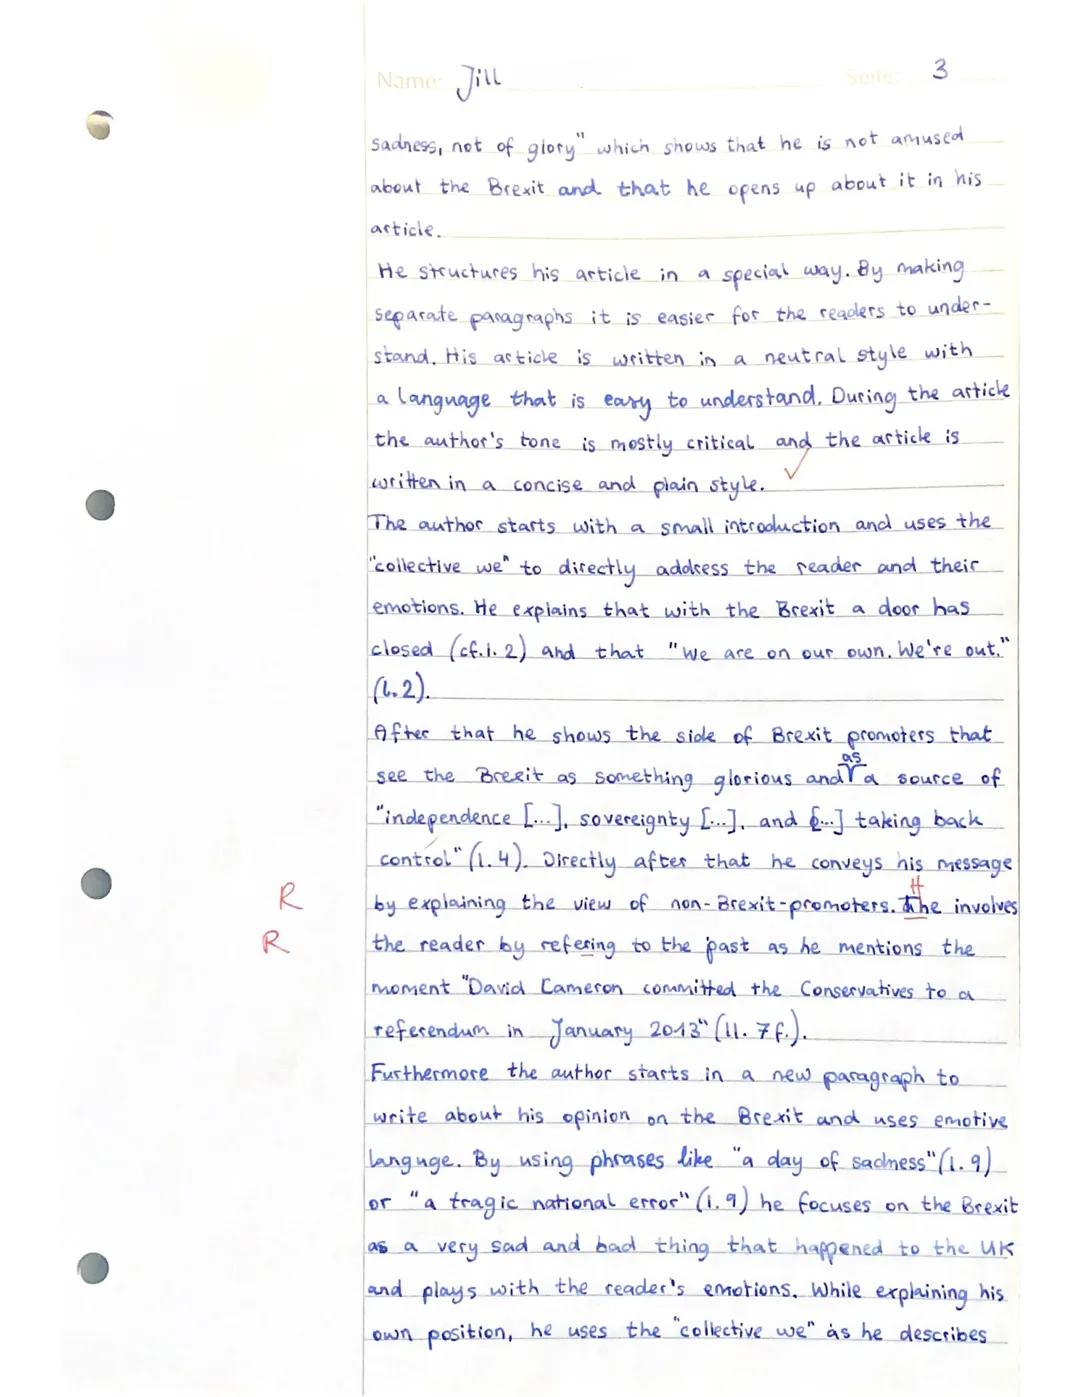 Name: Jill Seite: 3
sadness, not of glory" which shows that he is not amused
about the Brexit and that he opens up about it in his
article.
He structures his article in a special way. By making
separate paragraphs it is easier for the readers to under-
stand. His article is written in a neutral style with
a language that is easy to understand. During the article
the author's tone is mostly critical and the article is
written in a concise and plain style.
The author starts with a small introduction and uses the
"collective we" to directly address the reader and their
emotions. He explains that with the Brexit a door has
closed (cf. l. 2) and that "We are on our own. We're out."
(l. 2).
After that he shows the side of Brexit promoters that
as
see the Brexit as something glorious and a source of
"independence [...], sovereignty [...], and [...] taking back
control" (l. 4). Directly after that he conveys his message
H
R by explaining the view of non-Brexit-promoters. The involves
R the reader by refering to the past as he mentions the
moment "David Cameron committed the Conservatives to a
referendum in January 2013" (ll. 7f.).
Furthermore the author starts in a new paragraph to
write about his opinion on the Brexit and uses emotive
languge. By using phrases like "a day of sadness" (l. 9)
or "a tragic national error" (l. 9) he focuses on the Brexit
as a very sad and bad thing that happened to the UK
and plays with the reader's emotions. While explaining his
own position, he uses the "collective we" as he describes